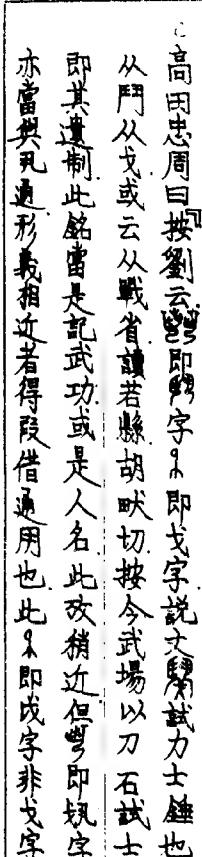 高田忠周曰『按劉云即字即戈字說文鬭試力士錘也
从鬥从戈或云从戰省讀若縣胡畎切.按今武場以刀石試士
即其遺制.此銘當是記武功.或是人名.此攷稍近.但即字
亦當與丮通.形義相近者得叚借通用也.此即戌字非戈字